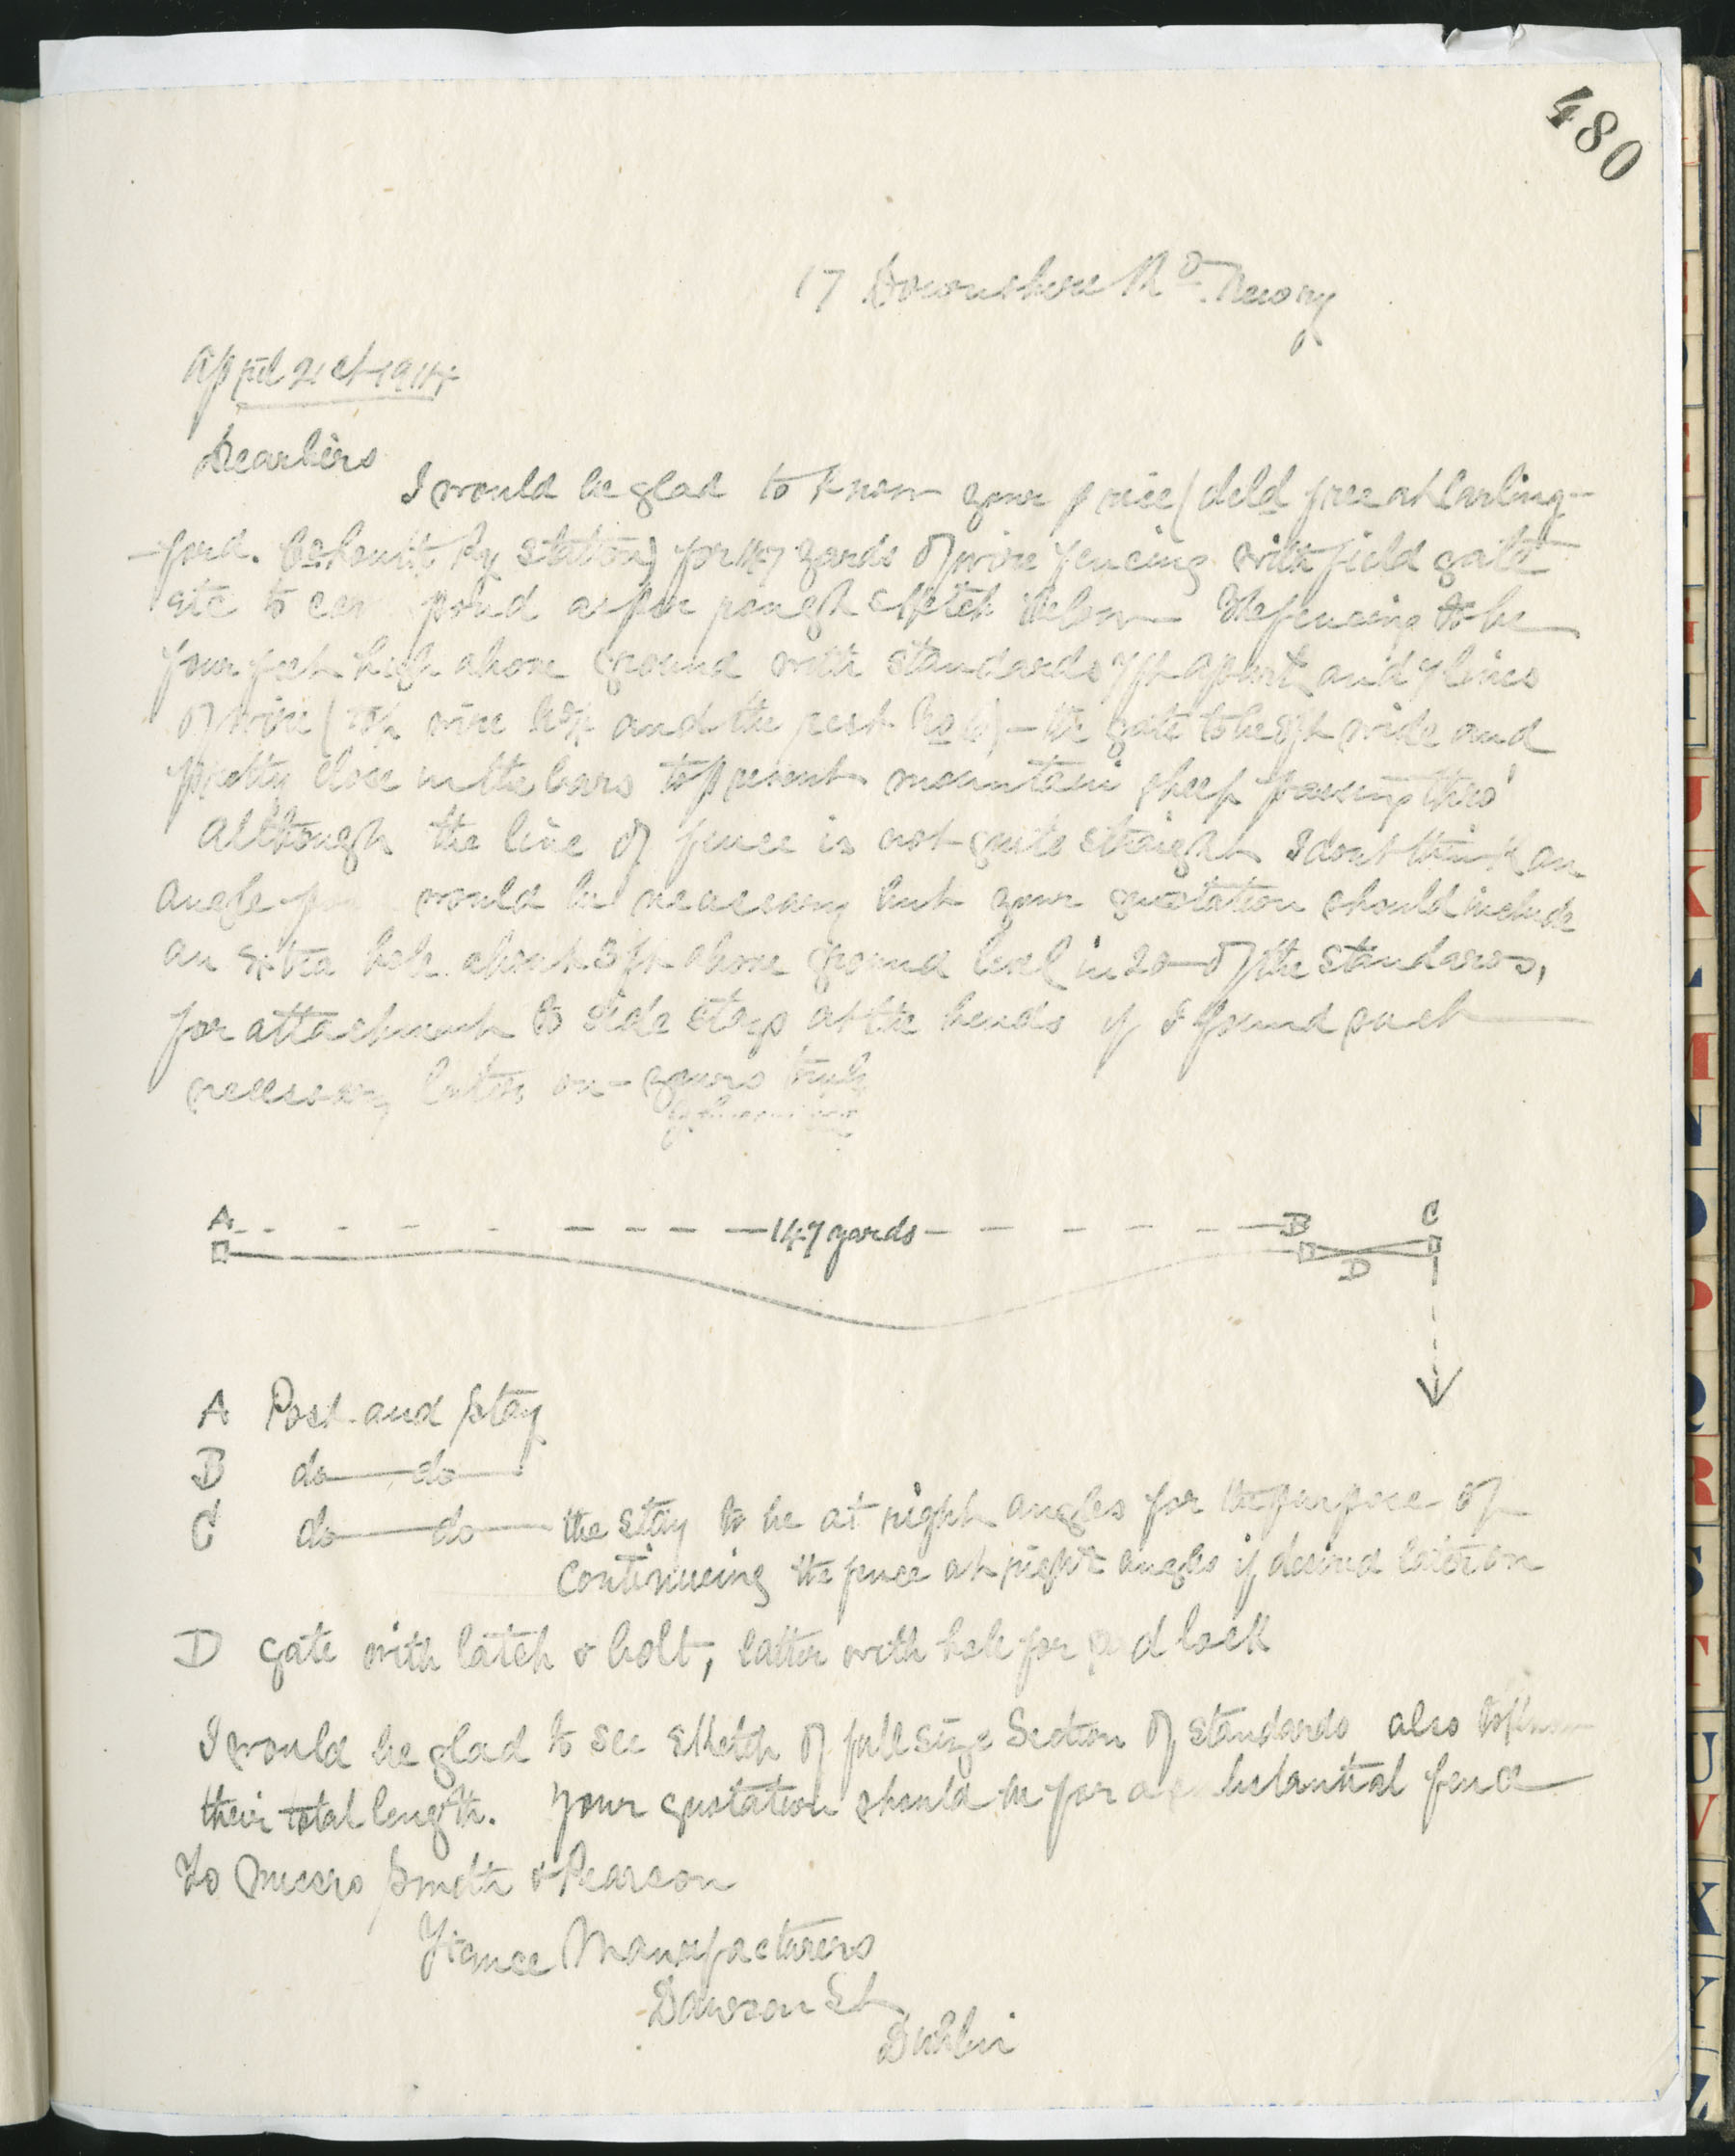 480
17 Devonshire Rd. Newry
April 21st 1914
Dear Sirs
I would be glad to know your price (deld free at Carling-
-ford. Co. Louth Ry station) for 147 yards of wire fencing with field gate
etc to pond as per rough sketch below The fencing to be
four feet high above ground with standards 7ft apart and 7 lines
of wire (top wire No 4 and the rest No 6) - the gate to be 9ft wide and
pretty close in the bars to prevent mountain sheep passing thro'
Although the line of fence is not quite straight I dont think an
angle would be necessary but your quotation should include
an extra hole about 3 ft above ground level in 20 of the standards,
for attachment to side stays at the bends if I found such
necessary later on - yours truly
A - 147 yards - B C
D
A Post and Stay
B do do
C do do the stay to be at right angles for the purpose of
continueing the fence at right angles if desired later on
D gate with latch & bolt, latter with hole for padlock
I would be glad to see sketch of full size Section of standards also to know
their total length. Your quotation should be for a substantial fence
To Messrs Smith & Pearson
Fence Manufacturers
Dawson St
Dublin